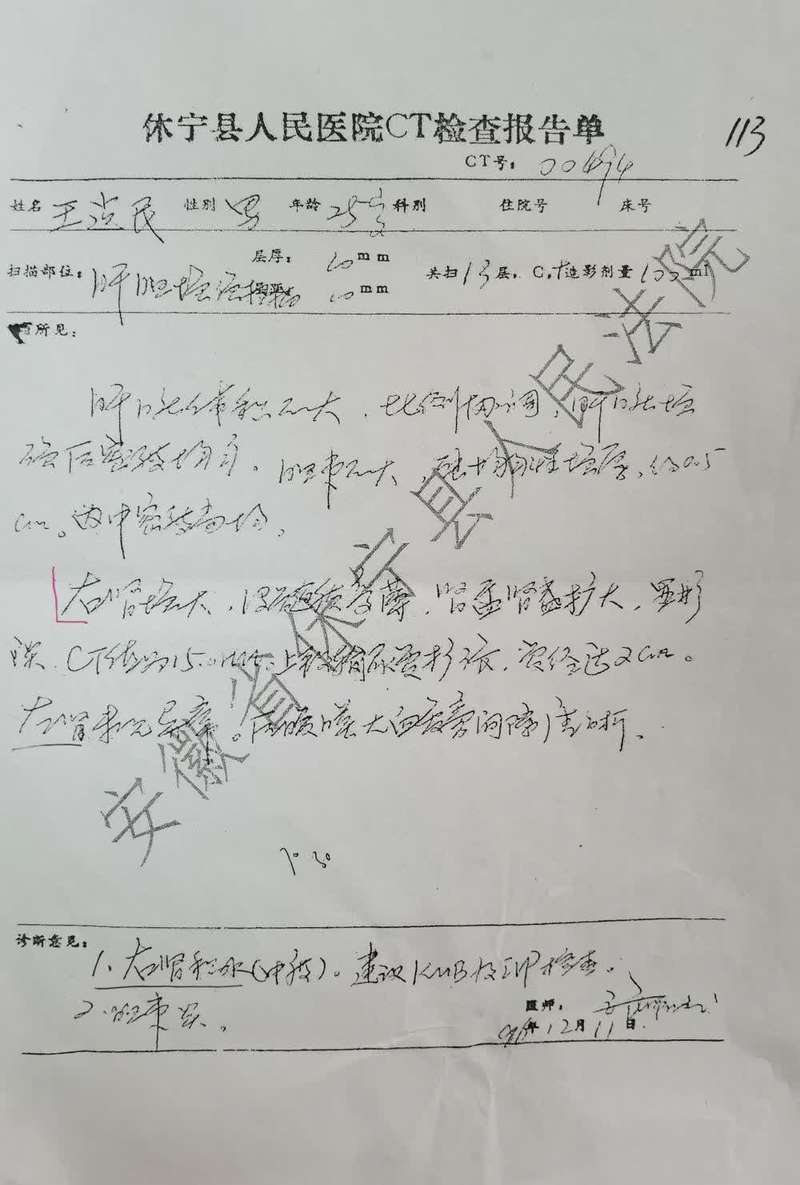 休宁县人民医院CT检查报告单
113
CT号: 00494
姓名 王 民 性别 男 年龄 25岁 科别 住院号 床号
层厚: 10mm
扫描部位: 肝胆增强 共扫13层, C+造影剂量100ml
10mm
所见:
肝脏体积不大, 比例协调, 肝脏增
强后密度均匀. 胆囊不大, 壁均匀性增厚, 约0.5
cm。内中密度尚均.
右肾增大, 皮质菲薄, 肾盂肾盏扩大,
CT值为15. 上段输尿管扩张, 管径达2cm。
左肾未见异常。后腹膜大血管旁间隙清晰.
诊断意见:
1. 右肾积水(中度)。建议KUB及IVP检查。
2. 胆囊炎。
医师:
96年12月11日
安徽省休宁县人民法院